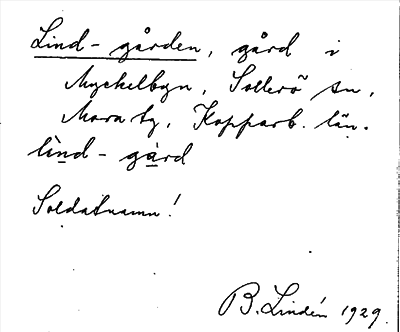 Lind-gården, gård i
Myckelbyn, Sollerö sn,
Mora tg, Kopparb. län.
lìnd-gàrd
Soldatnamn!
B. Lindén 1929.